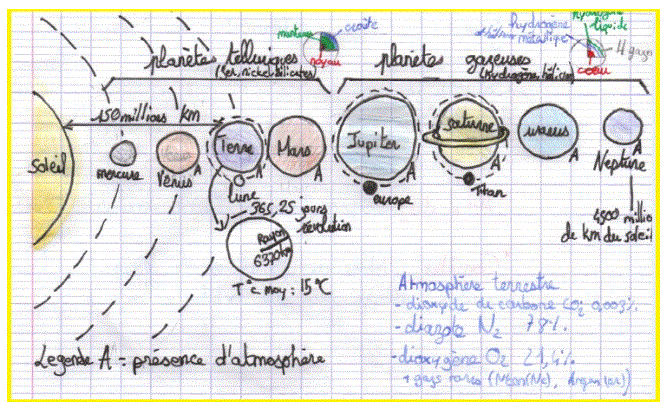 manteau
croûte
noyau
hydrogène
liquide
hydrogène
métallique
gaz
coeur
planètes telluriques
(fer, nickel, silicates)
planètes gazeuses
(hydrogène, hélium)
150 millions km
Soleil
mercure
Vénus
A
Terre
A
Mars
A
Jupiter
A
saturne
A
uranus
A
Neptune
A
lune
europe
Titan
365,25 jours
révolution
Rayon
6370km
T°c moy : 15°C
4500 millio
de km du soleil
Atmosphère terrestre
- dioxyde de carbone CO2 0,003%
- diazote N2 78%
- dioxygène O2 21,4%
+ gaz rares (Néon(Ne), Argon(Ar))
Legende A = présence d'atmosphère